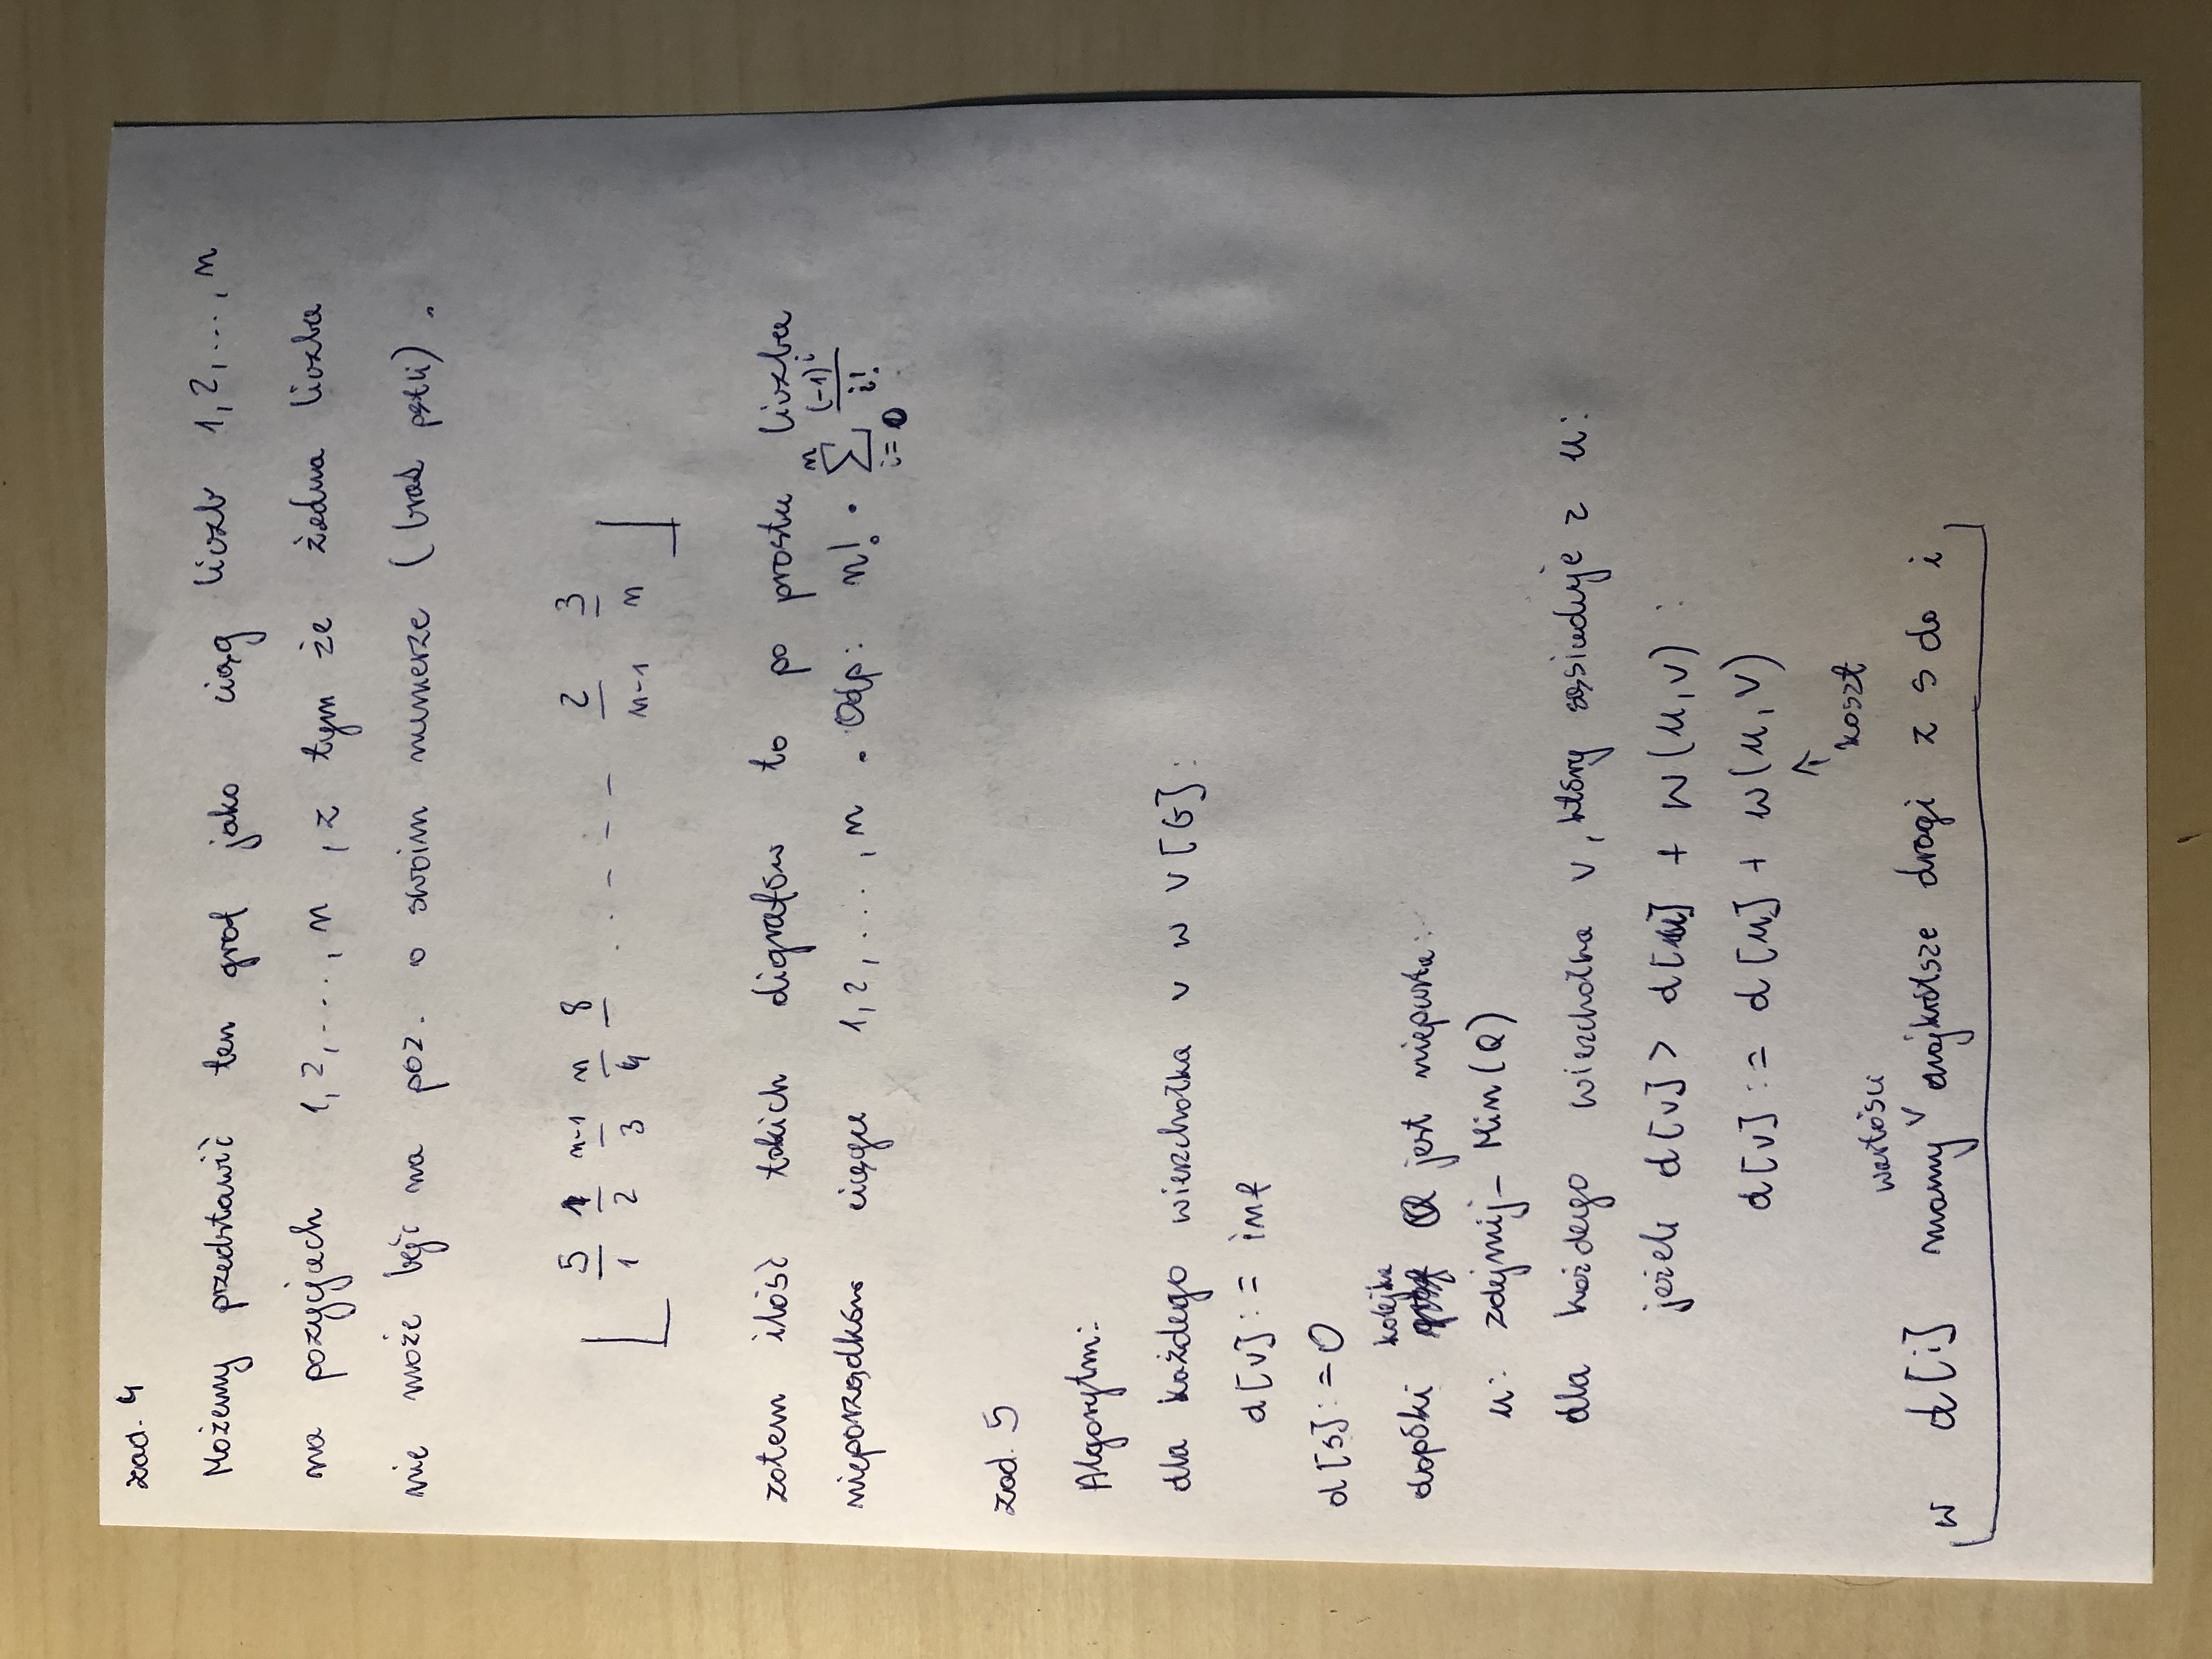 zad. 4
Możemy przedstawić ten graf jako ciąg liczb 1, 2, ..., n
na pozycjach 1, 2, ..., n, z tym że żadna liczba
nie może być na poz. o swoim numerze (brak pętli).
5 1 n-1 n 8 . - - - 2 3
1 2 3 4 n-1 n
zatem ilość takich digrafów to po prostu liczba
nieporządków ciągu 1, 2, ..., n. Odp: n! · ∑_{i=0}^{n} (-1)^i / i!
zad. 5
Algorytm:
dla każdego wierzchołka v w V[G]:
d[v] := inf
d[s] := 0
dopóki kolejka Q jest niepusta:
u: zdejmij_Min(Q)
dla każdego wierzchołka v, który sąsiaduje z u:
jeżeli d[v] > d[u] + w(u,v) :
d[v] := d[u] + w(u,v)
↑ koszt
w d[i] mamy wartości najkrótsze drogi z s do i